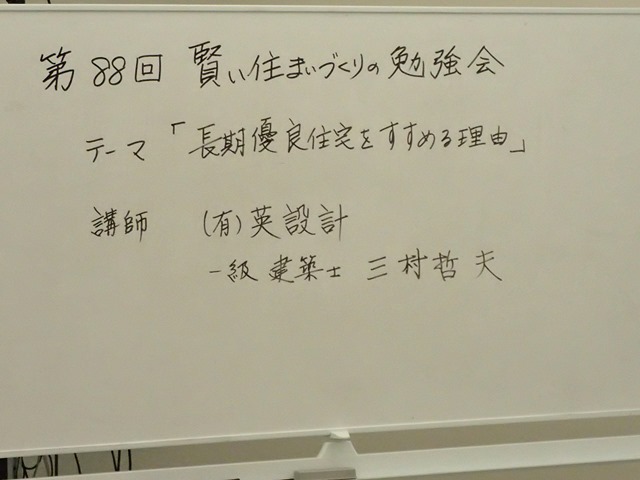 第88回 賢い住まいづくりの勉強会
テーマ「長期優良住宅をすすめる理由」
講師 (有)英設計
一級建築士 三村哲夫